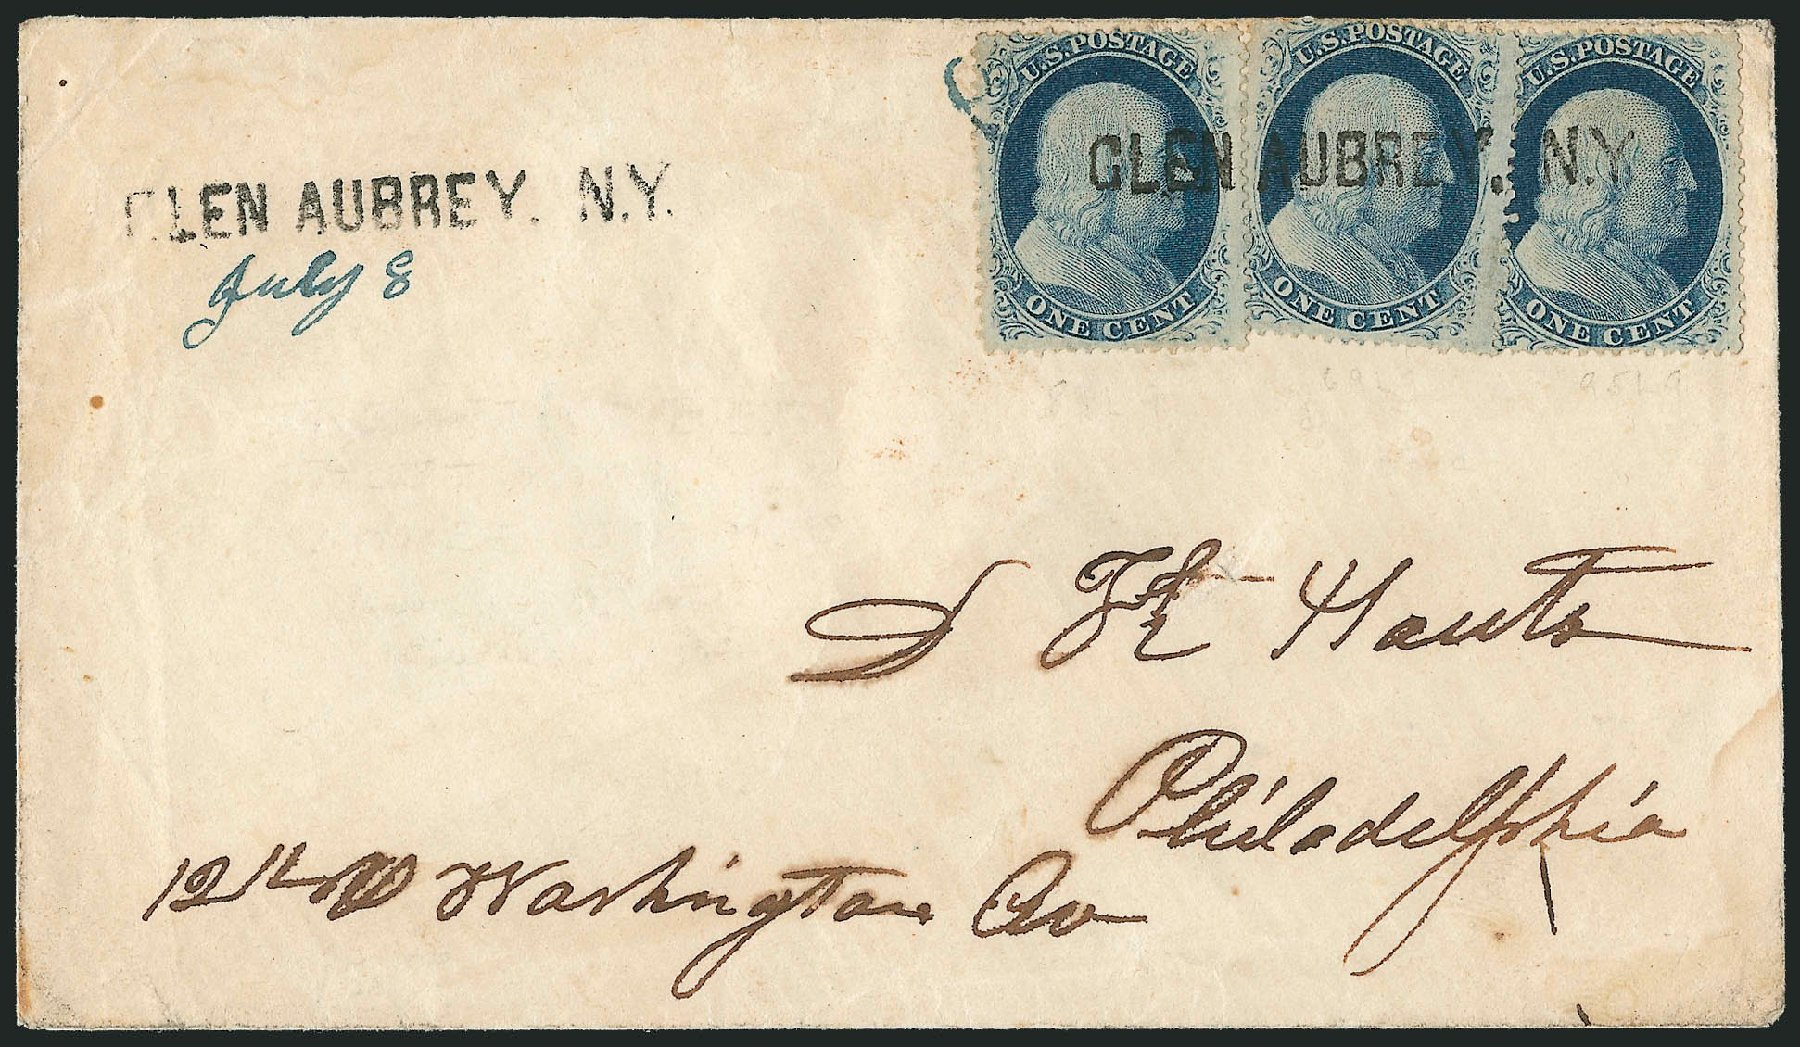 U.S. POSTAGE U.S. POSTAGE U.S. POSTAGE
GLEN AUBREY. N.Y.
ONE CENT ONE CENT ONE CENT
GLEN AUBREY. N.Y.
July 8
Houts
Philadelphia
Washington Av